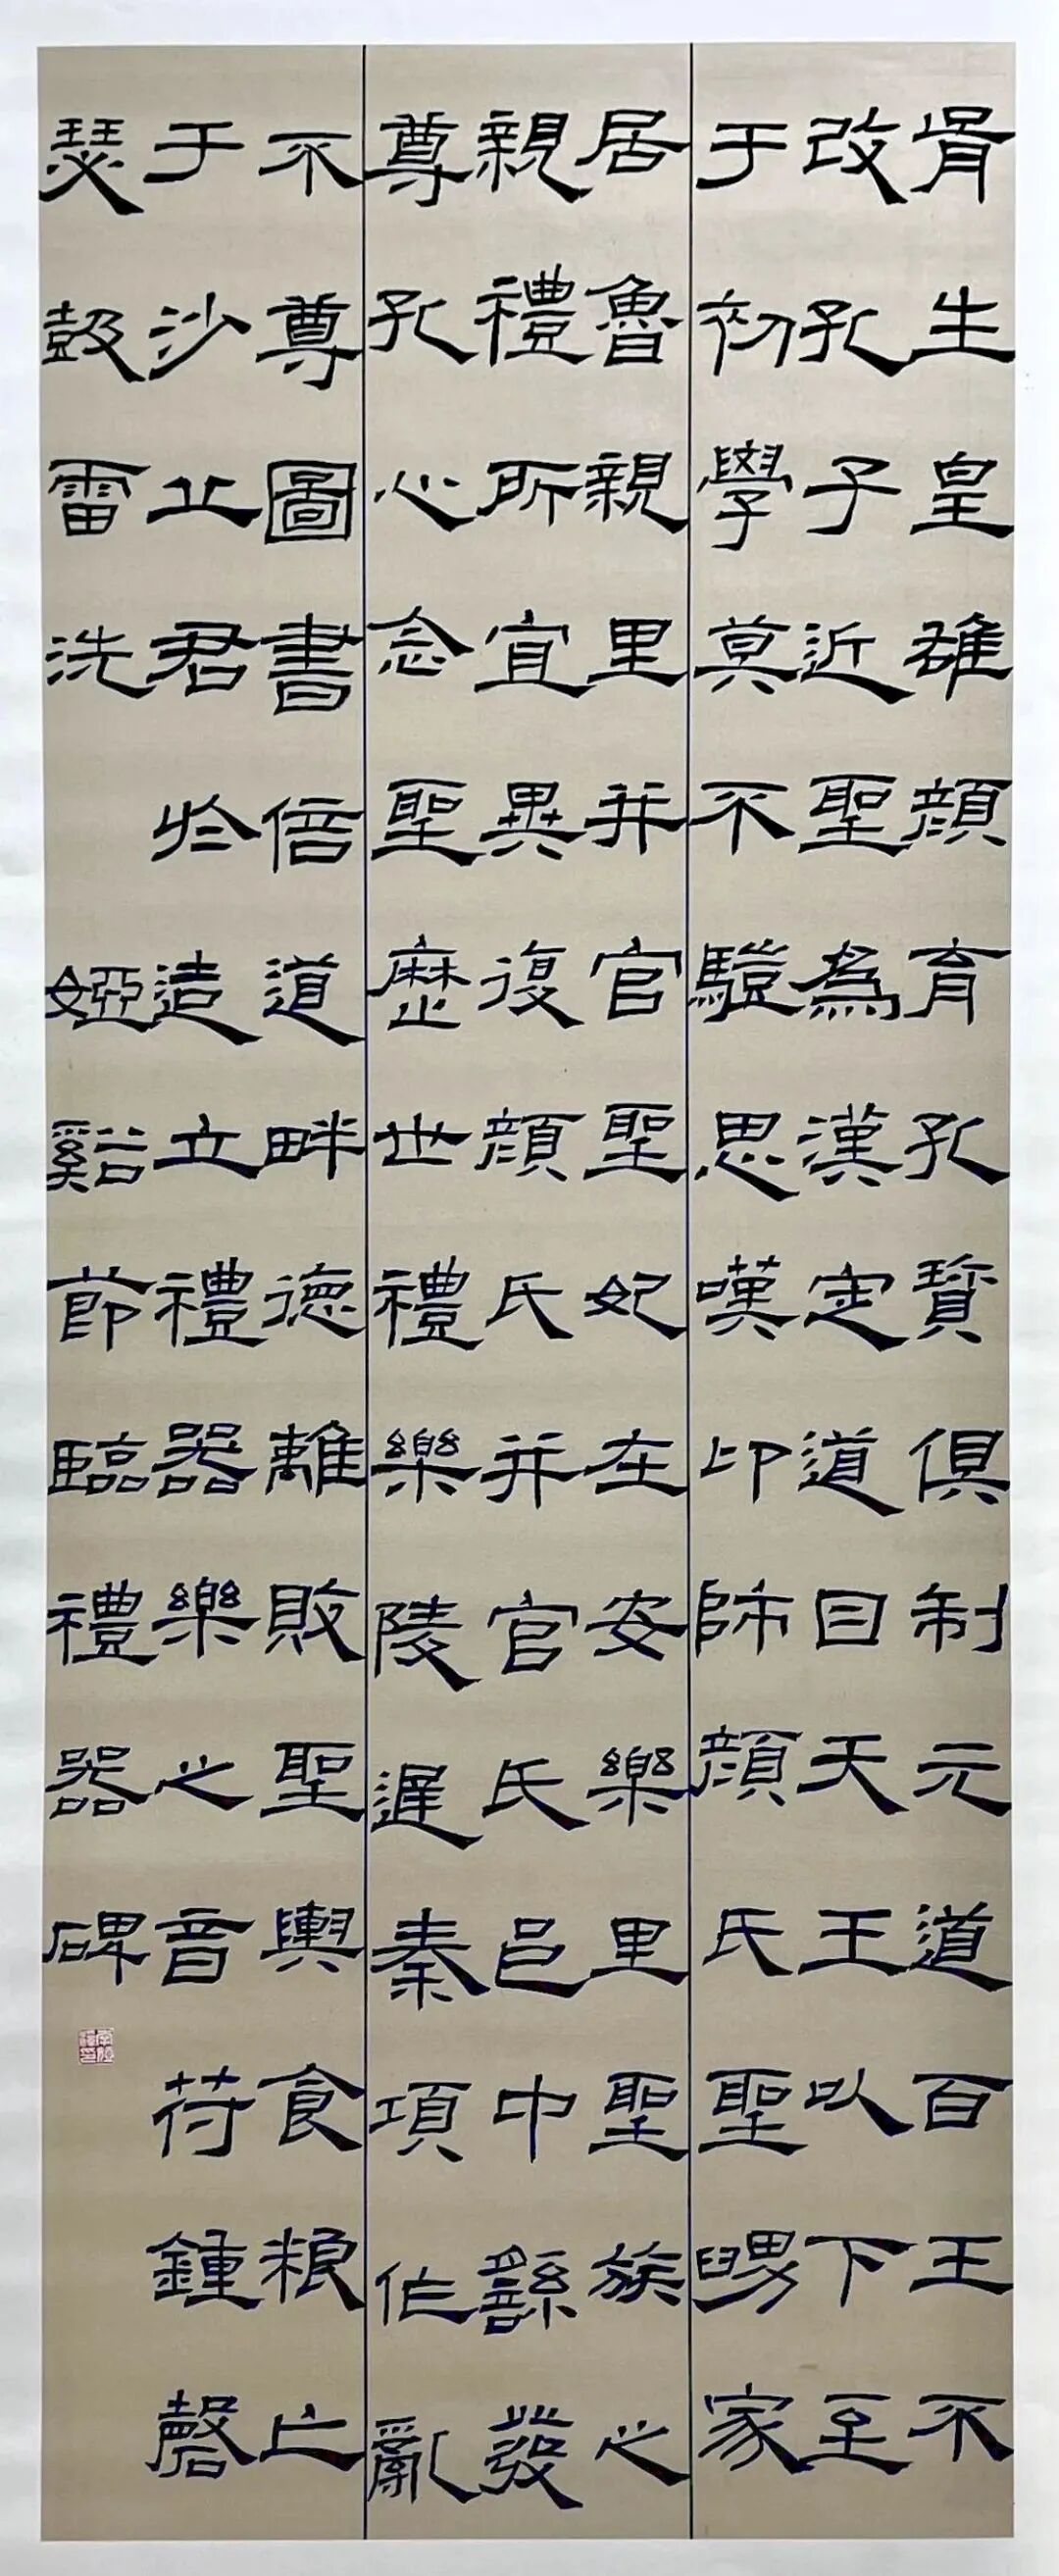 胥生皇雄顏育孔寶俱制元道百王不
改孔子近聖為漢定道自天王以下至
于初學莫不驥思嘆卬師顏氏聖舅家
居魯親里并官聖妃在安樂里聖族之
親禮所宜異復顏氏并官氏邑中繇發
尊孔心念聖歷世禮樂陵遲秦項作亂
不尊圖書倍道畔德離敗聖輿食粮亡
于沙丘君於造立禮器樂之音符鍾磬
瑟鼓雷洗 婭谿節臨禮器碑